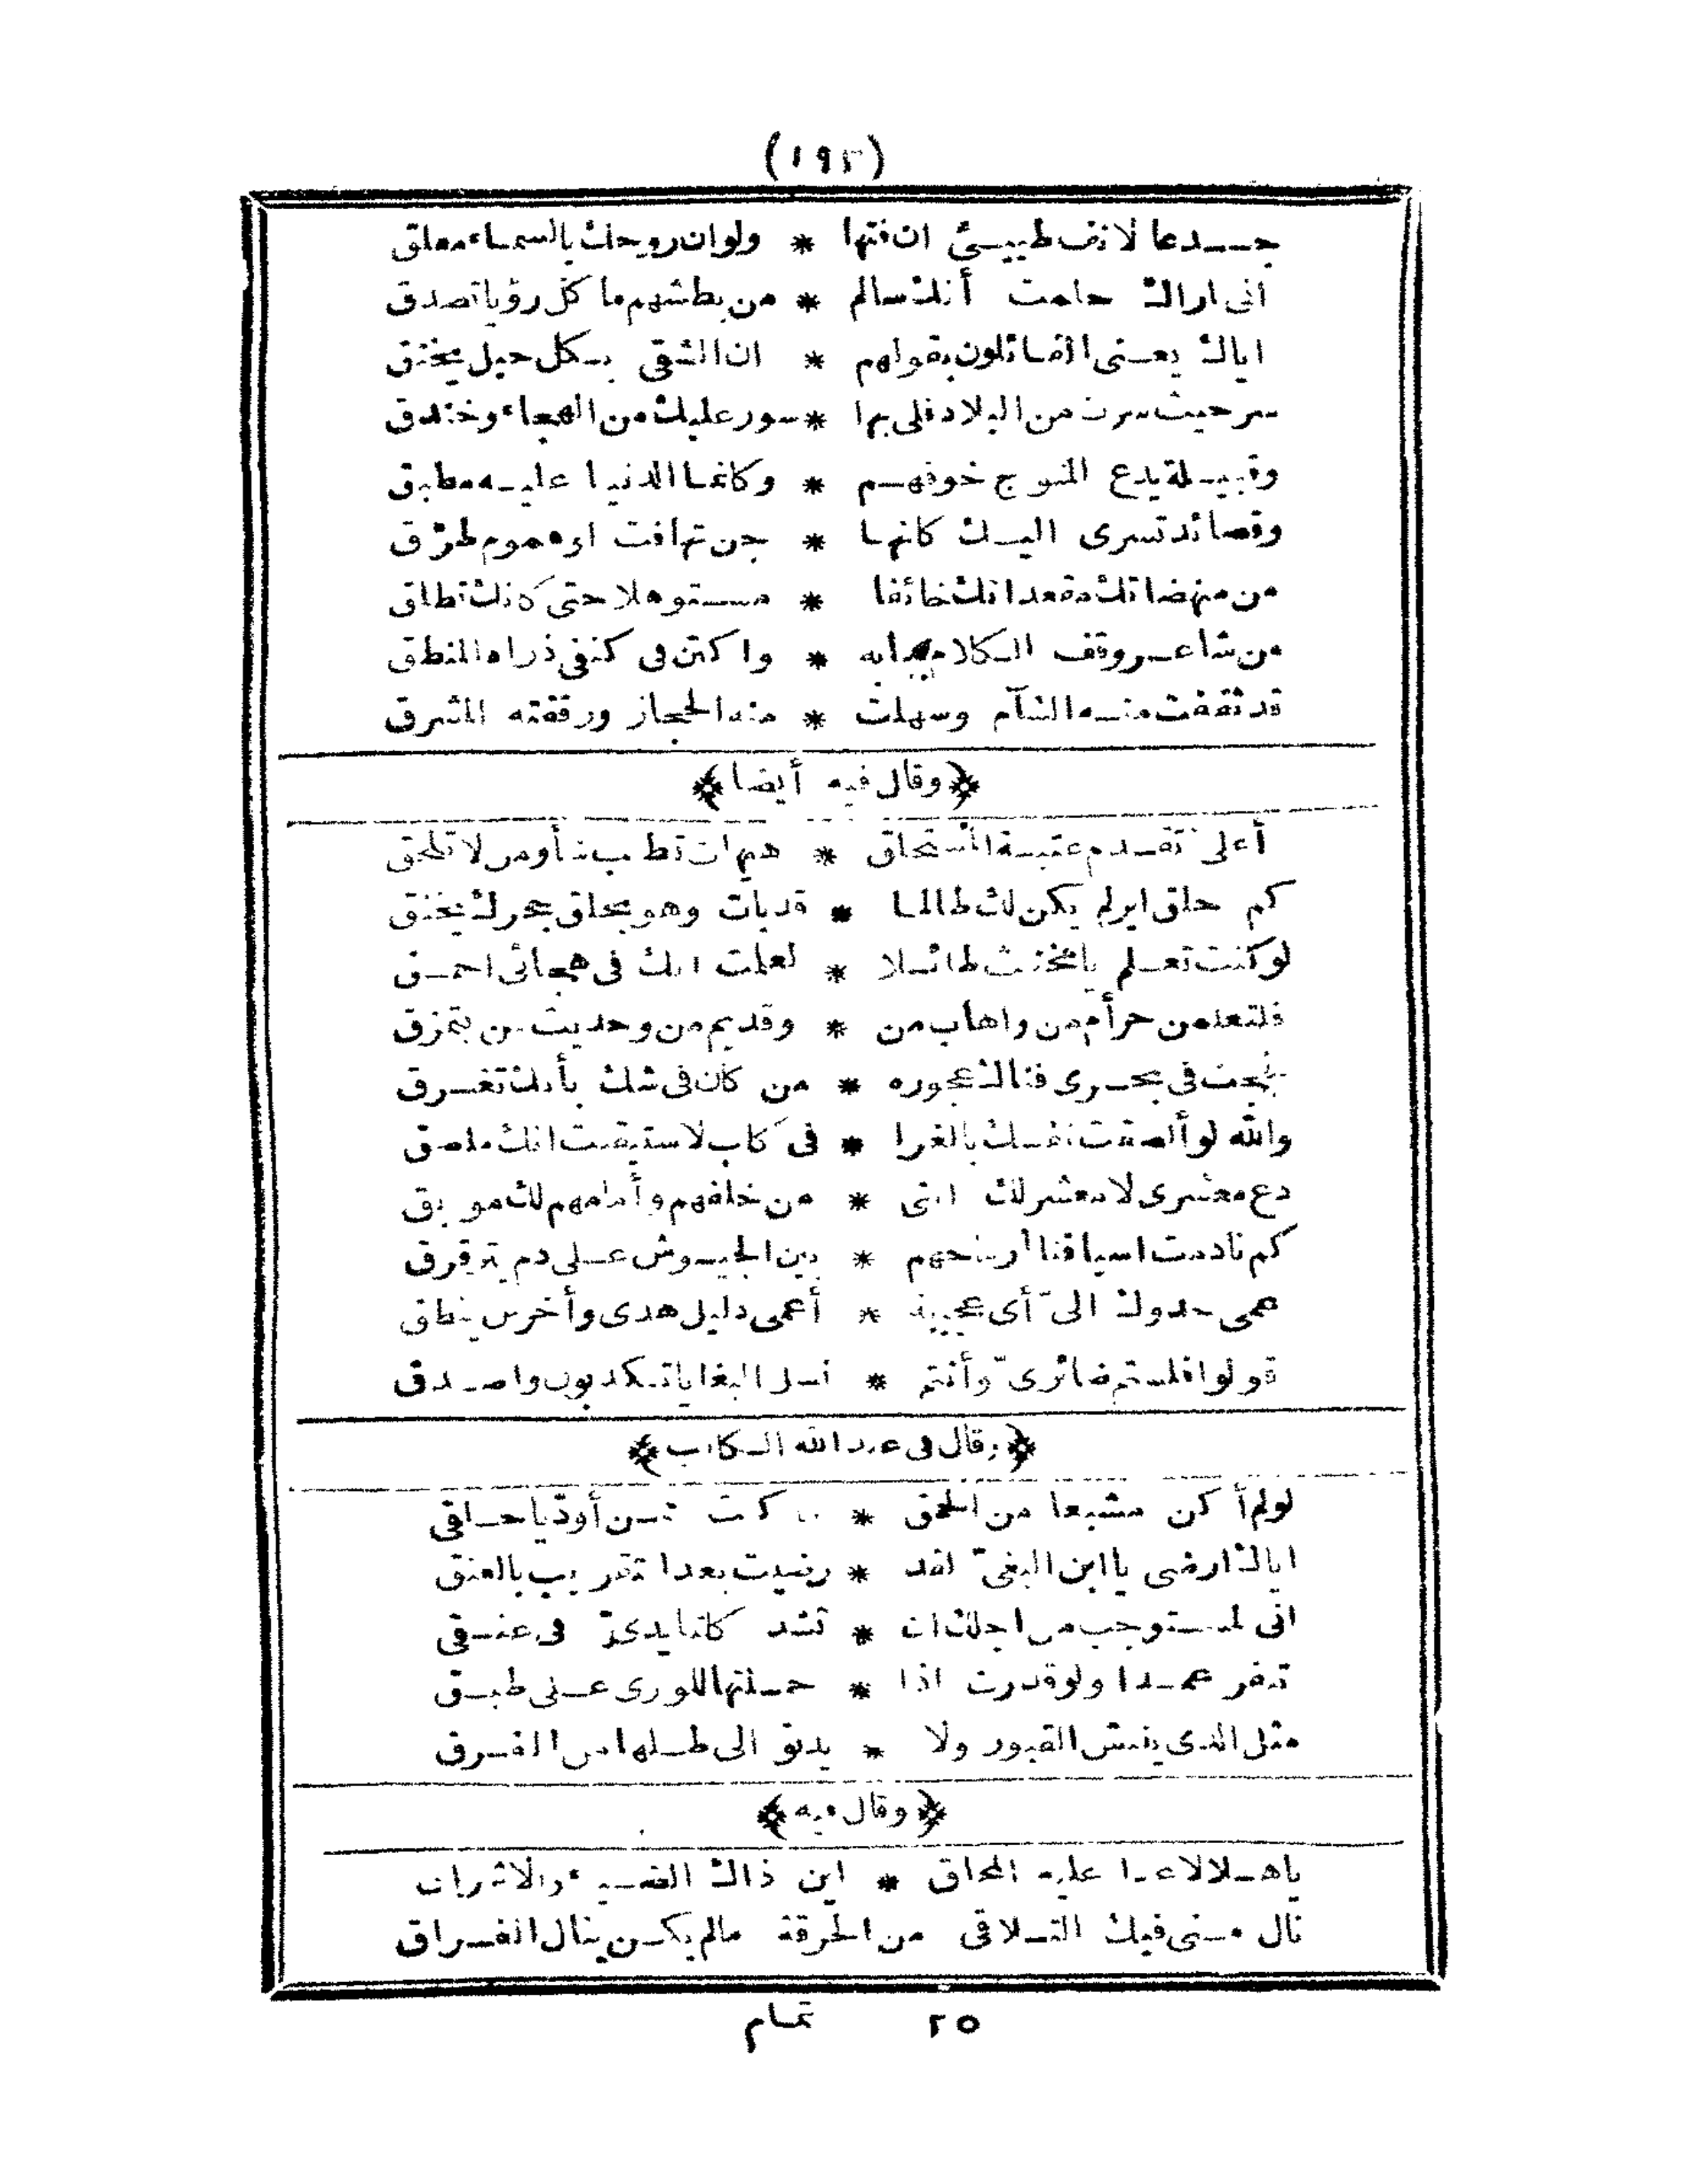 (١٩٣)
جدعا لانف طيئ ان فتها * ولو ان روحك بالسماء معلق
انى اراك حلمت أنك سالم * من بطشهم ما كل رؤيا تصدق
اياك يعنى القائلون بقولهم * ان الشقى بكل حبل يخنق
سر حيث سرت من البلاد فلى بها * سور عليك من الهجاء وخندق
وقبيلة يدع المتوج خوفهم * وكانما الدنيا عليه مطبق
وقصائد تسرى اليك كانها * جن تهافت او هموم طرّق
من منهضاتك مقعداتك خائفا * مستوهلا حتى كانك تطلق
من شاعر وقف الكلام ببابه * واكتن فى كنفى ذراه المنطق
قد ثقفت منه الشآم وسهلت * منه الحجاز ورققته المشرق
﴿وقال فيه أيضا﴾
أعلى تقدم عتبة المستحلق * هيهات تطلب شأو من لا تلحق
كم حلق اير لم يكن لك طالما * قد بات وهو بحلق جحرك يخنق
لو كنت تعلم يا مخنث طائلا * لعلمت انك فى هجائى احمق
فلتعلمن حر أم من واهاب من * وقديم من وحديث من يتمزق
لججت فى بحرى فنالك بحوره * من كان فى شك بأنك تغرق
والله لو ألصقت نفسك بالغرا * فى كلب لاستيقنت انك ملصق
دع معشرى لا معشر لك اننى * من خلفهم وأمامهم لك موبق
كم نادمت اسيافنا أرماحهم * بين الجيوش على دم يترقرق
عمى حدوك الىّ أى عجيبة * أعمى دليل هدى وأخرس ينطق
قولوا فلستم ضائرىّ وأنتم * نسل البغايا تكذبون واصدق
﴿وقال فى عبد الله الكاتب﴾
لو لم أكن مشبعا من الحمق * كنت أودّ يا حلقى
اياك ارضى يا ابن البغىّ لقد * رضيت بعدا تقريب بالعنق
انى لمستوجب من اجلك ان * تشد كلتا يدىّ فى عنقى
تنفر عمدا ولو قدرت اذا * حملتها للورى على طبق
مثل الذى ينبش القبور ولا * يدنو الى طلها من الفرق
﴿وقال فيه﴾
يا هلالا عدا عليه المحاق * اين ذاك الضياء والاشراق
نال منى فيك التلاقى من الحرقة مالم يكن ينال الفراق
٢٥ تمام